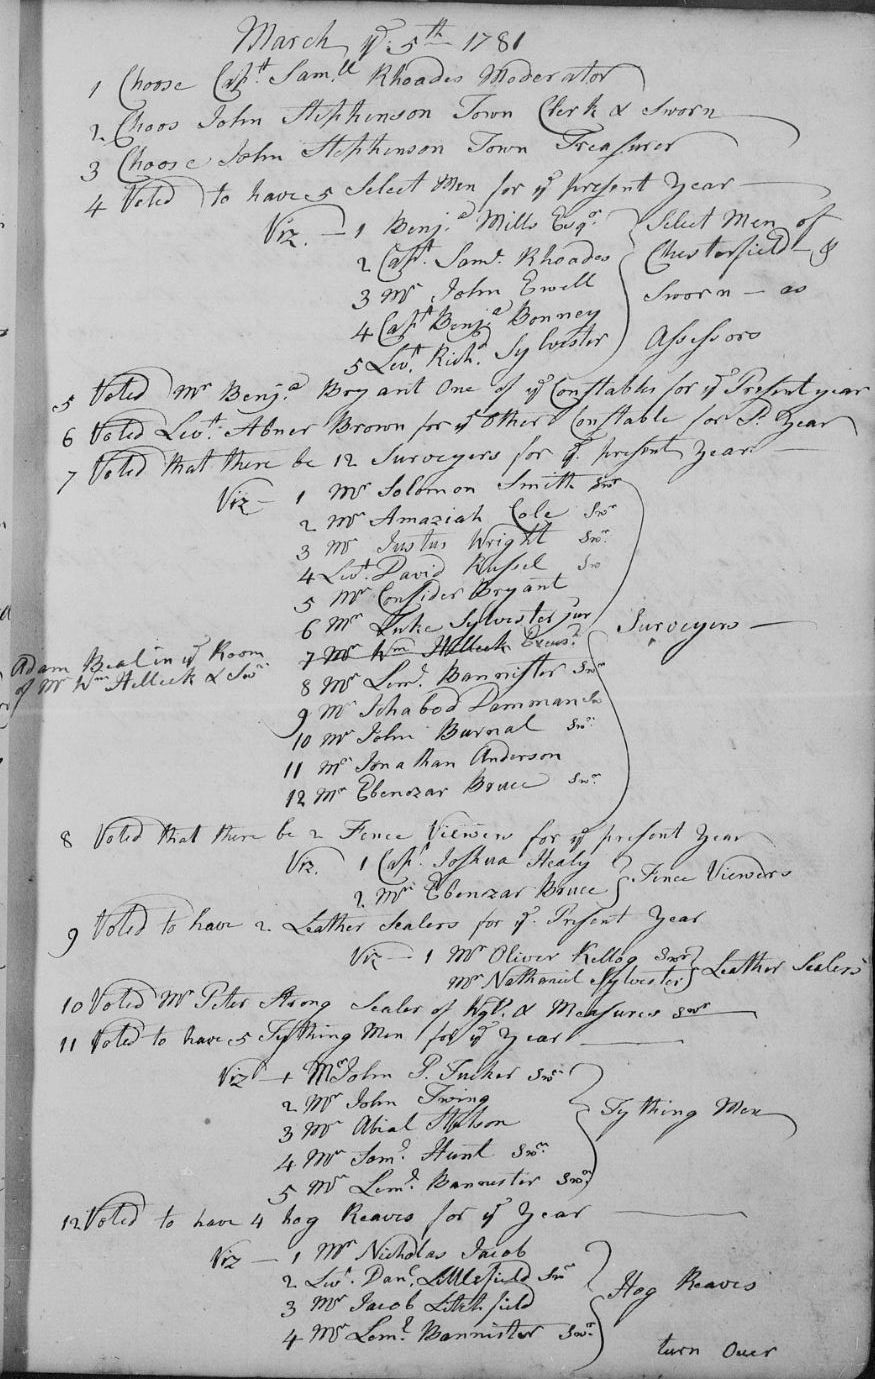 March ye 5th 1781
1 Choose Capt Samll Rhoades Moderator
2 Choos John Stephenson Town Clerk & Sworn
3 Choose John Stephenson Town Treasurer
4 Voted to have 5 Select Men for ye present Year
Viz. 1 Benja Mills Esqr
2 Capt. Saml. Rhoades
3 Mr John Ewell
4 Capt Benja Bonney
5 Levt. Richd. Sylvester
Select Men of
Chesterfield &
Sworn as
Assessors
5 Voted Mr Benja Bryant One of ye Constables for ye Present year
6 Voted Levt. Abner Brown for ye Other Constable for P. Year
7 Voted that there be 12 Surveyers for ye present Year
Viz 1 Mr Solomon Smith Swr
2 Mr Amaziah Cole Swr
3 Mr Justus Wright Swr.
4 Levt. David Russel Sw
5 Mr Consider Bryant
6 Mr Luke Sylvester jur
7 Mr Wm Hilleck Excus.
8 Mr Leml. Bannister Swr
9 Mr Ichabod Damman Sw
10 Mr John Burnal Swr
11 Mr Jonathan Anderson
12 Mr Ebenezar Bruce Swr
Surveyers
Adam Beal in ye Room
of Mr Wm Hilleck & Swr
8 Voted that there be 2 Fence Viewers for ye present Year
Viz. 1 Capt Joshua Healy
2 Mr Ebenezar Bruce
Fence Viewers
9 Voted to have 2 Leather Sealers for ye. Present Year
Viz 1 Mr Oliver Kellog Swr
Mr Nathaniel Sylvester
Leather Sealers
10 Voted Mr Peter Strong Sealer of & Measures Swr
11 Voted to have 5 Tything Men for ye Year
Viz 1 Mr John P. Tucker Swr
2 Mr John Twing
3 Mr Abial Stetson
4 Mr Saml Hunt Swr.
5 Mr Leml. Bannester Swr
Tything Men
12 Voted to have 4 hog Reaves for ye Year
Viz 1 Mr Nicholas Jacob
2 Levt. Danl. Littlefield Swr
3 Mr Jacob Litchfield
4 Mr Leml. Bannister Swr.
Hog Reaves
turn Over